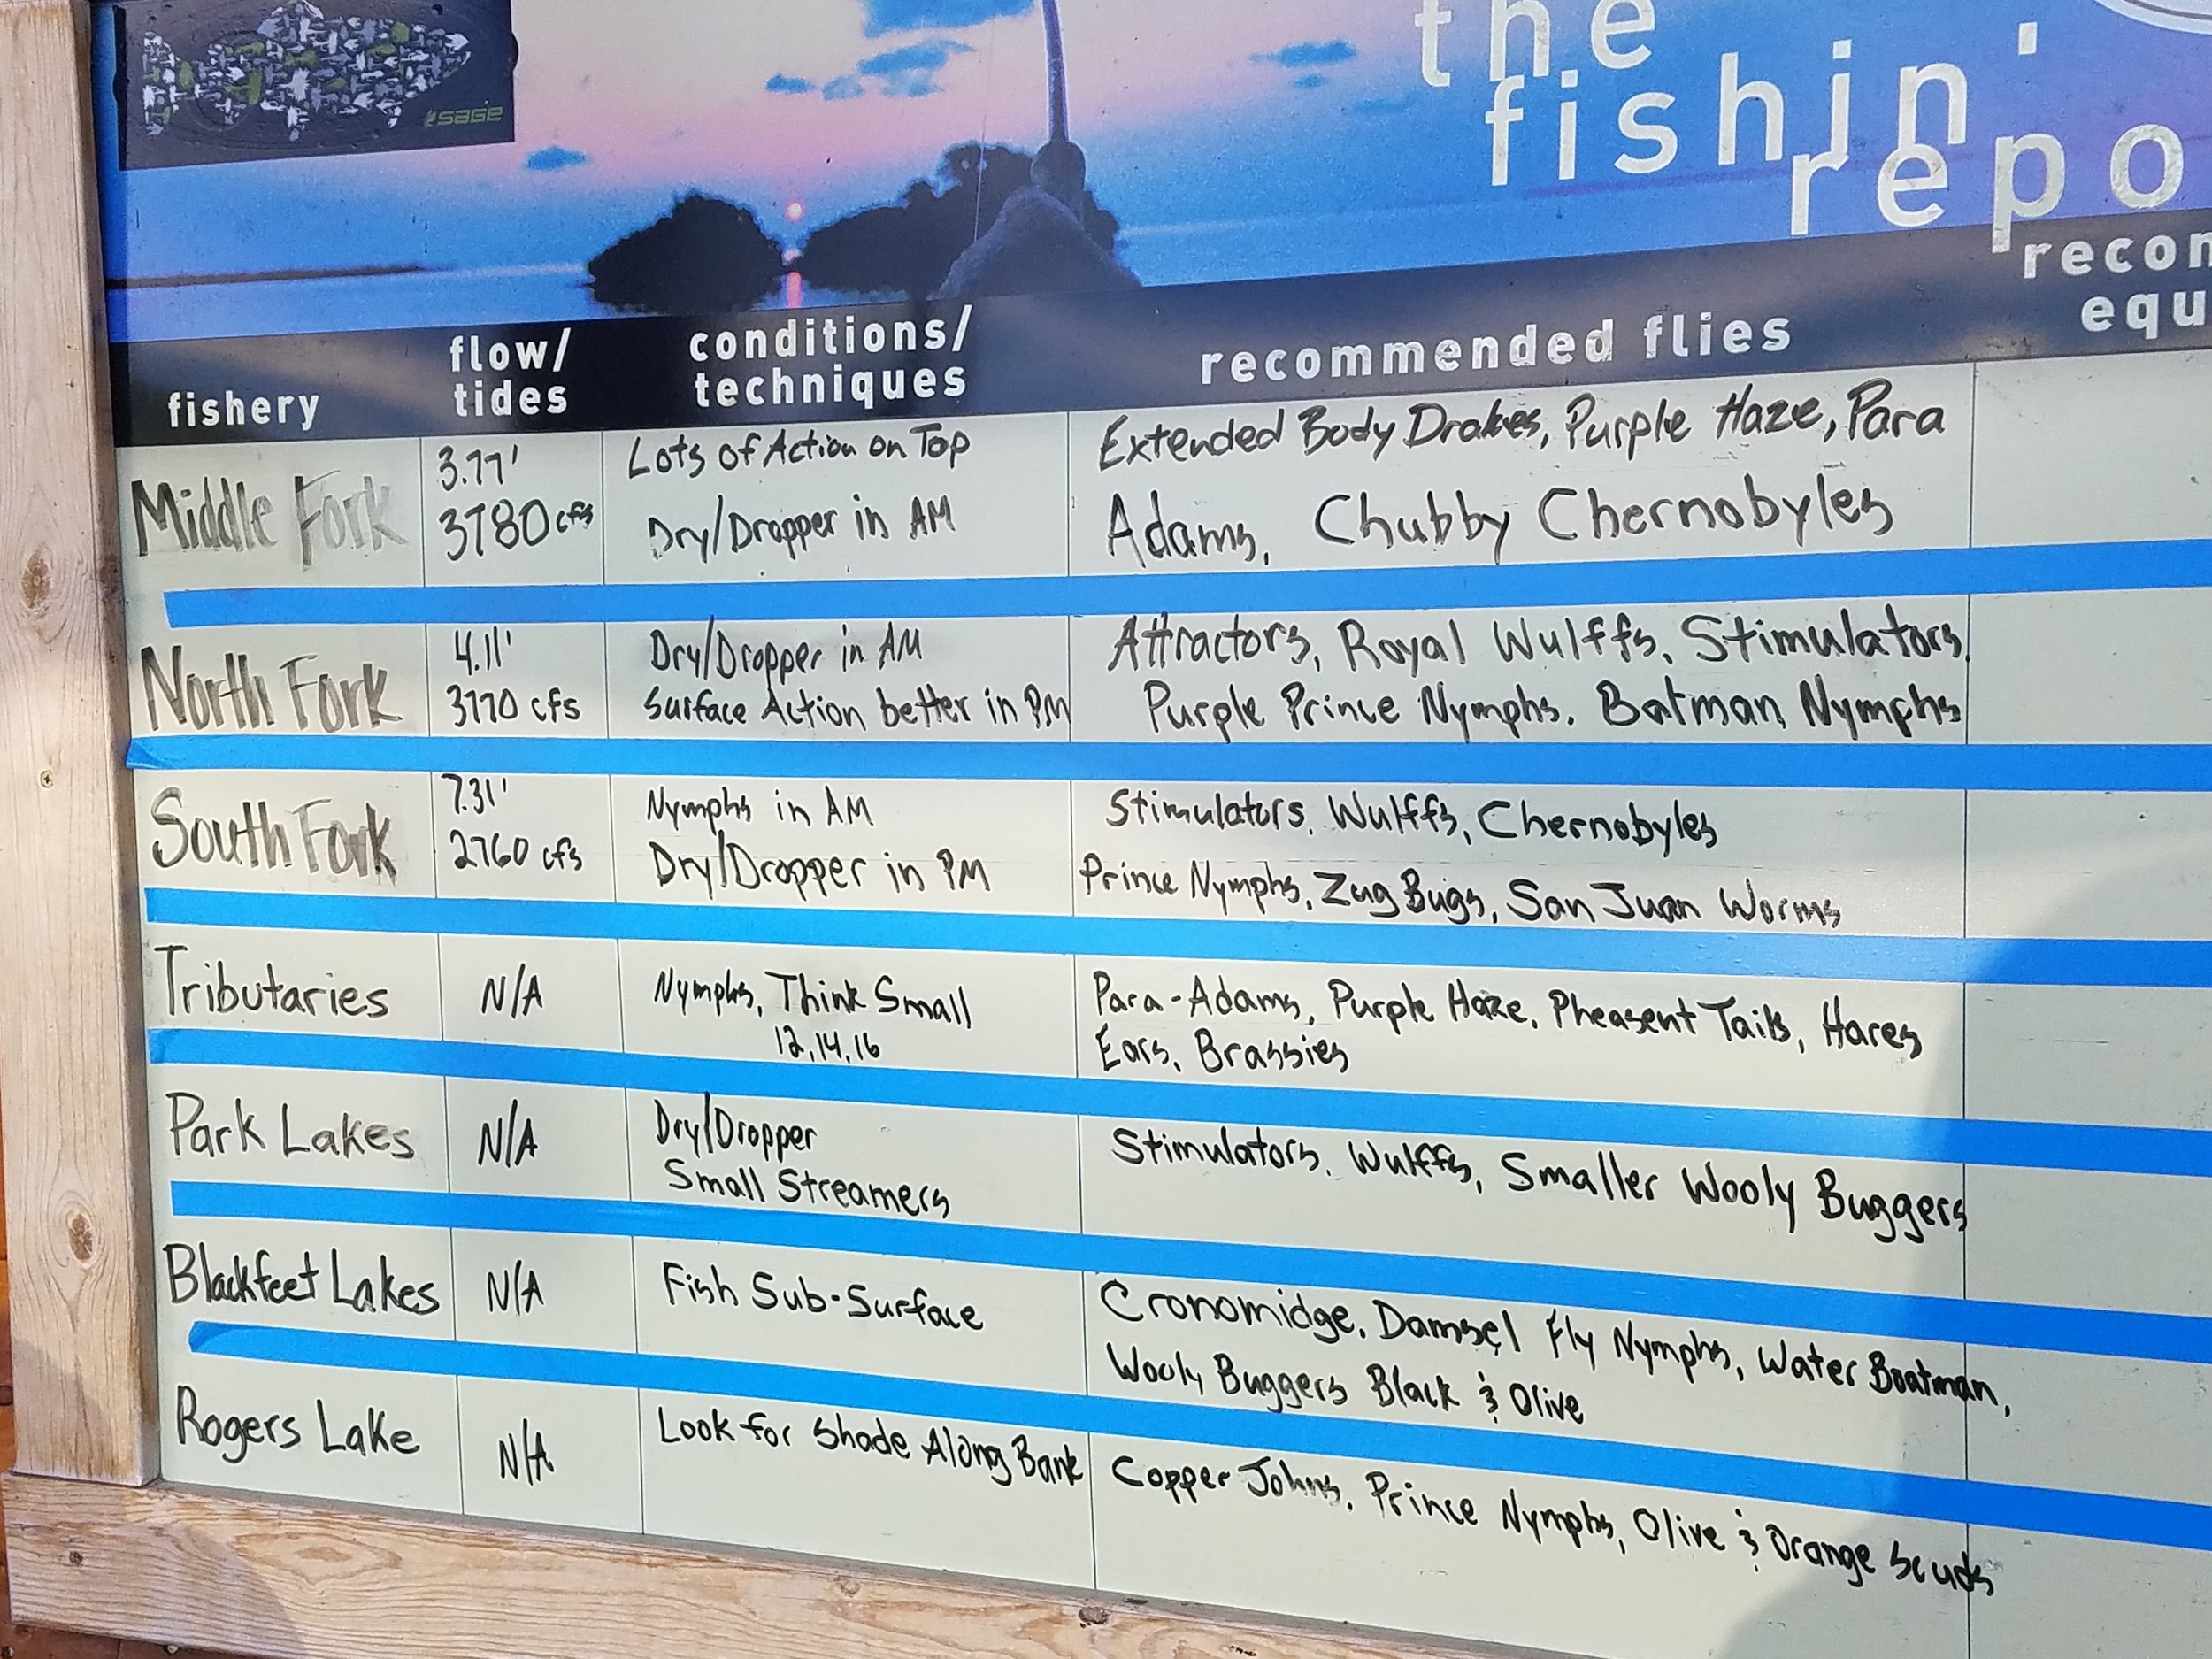 SAGE
the
fishin'
repo
fishery
flow/
tides
conditions/
techniques
recommended flies
recon
equ
Middle Fork
3.77'
3780 cfs
Lots of Action on Top
Dry/Dropper in AM
Extended Body Drakes, Purple Haze, Para
Adams, Chubby Chernobyles
North Fork
4.11'
3770 cfs
Dry/Dropper in AM
Surface Action better in PM
Attractors, Royal Wulffs, Stimulators,
Purple Prince Nymphs, Batman Nymphs
South Fork
7.31'
2760 cfs
Nymphs in AM
Dry/Dropper in PM
Stimulators, Wulffs, Chernobyles
Prince Nymphs, Zug Bugs, San Juan Worms
Tributaries
N/A
Nymphs, Think Small
12,14,16
Para-Adams, Purple Haze, Pheasent Tails, Hares
Ears, Brassies
Park Lakes
N/A
Dry/Dropper
Small Streamers
Stimulators, Wulffs, Smaller Wooly Buggers
Blackfeet Lakes
N/A
Fish Sub-Surface
Cronomidge, Damsel Fly Nymphs, Water Boatman,
Wooly Buggers Black & Olive
Rogers Lake
N/A
Look for Shade Along Bank
Copper Johns, Prince Nymphs, Olive & Orange Scuds